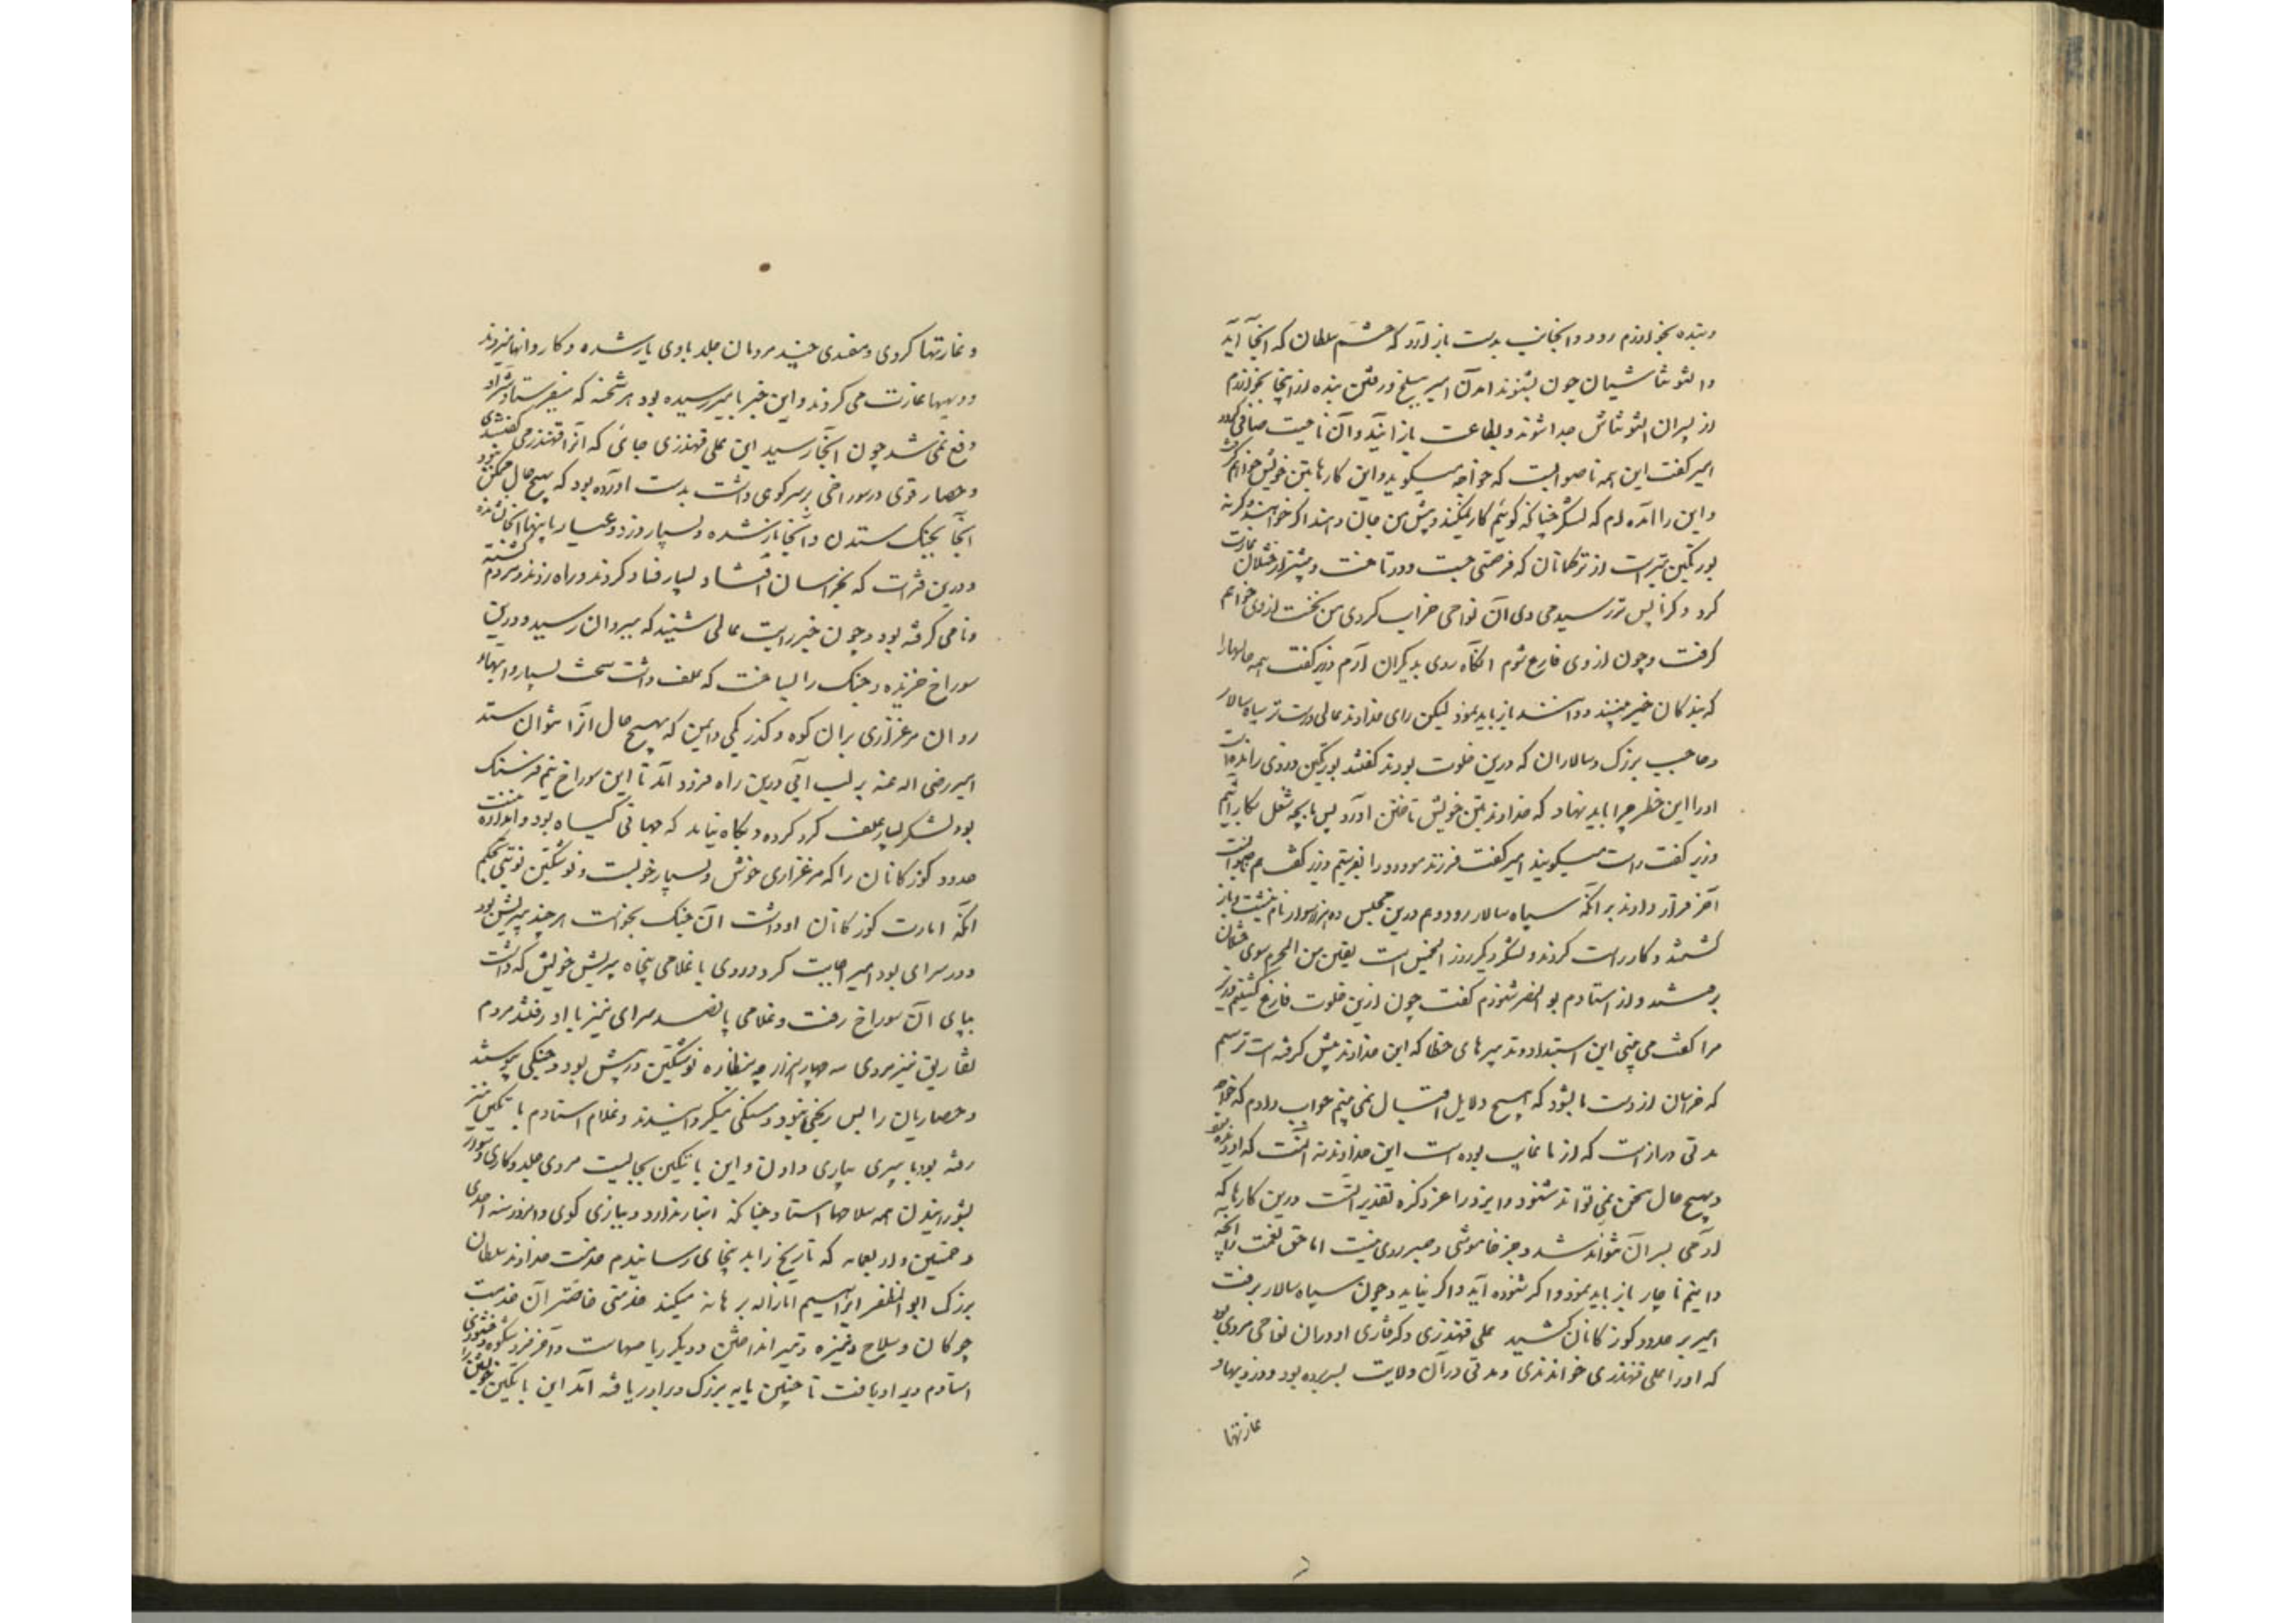 وبنده بخوارزم رود و آنجانب بدست باز آرد که حشم سلطان که اینجا آید
و التونتاشیان چون بشنوند آمدن امیر ببلخ و رفتن بنده از اینجا بخوارزم
از پسران التونتاش جدا شوند و بطاعت باز آیند و آن ناحیت صافی گردد
امیر گفت این همه ناصوابست که خواجه میگوید و این کارها بتن خویش خواهم
و این را آمده ام که لشکر چنانکه گویم کار نمیکنند و پیش من جان دهند اگر خواهند و گرنه
بورتگین بتر است از ترکمانان که فرصتی جست و درتاخت و بیشتر از ختلان غارت
کرد و گر ما پس تر رسیدمی وی آن نواحی خراب کردی من نخست از وی خواهم
گرفت و چون از وی فارغ شوم آنگاه روی بدیگران آرم وزیر گفت همه حالها را
که بندگان خیر بینند و دانند باز باید نمود لیکن رای خداوند عالی درست تر سپاه سالار
و حاجب بزرگ و سالاران که درین خلوت بودند گفتند بورتگین دزدی رانده است
او را این خطر چرا باید نهاد که خداوند بتن خویش تاختن آورد پس ما بچه شغل بکار آئیم
وزیر گفت راست میگویند امیر گفت فرزند مودود را بفرستیم وزیر گفت هم صوابست
آخر قرار دادند بر آنکه سپاه سالار رود و هم درین مجلس ده هزار سوار نام نبشت و باز
گشتند و کار راست کردند و لشکر دیگر روز الخمیس است بقین من المحرم سوی ختلان
برفتند و از استادم بونصر شنودم گفت چون ازین خلوت فارغ گشتیم وزیر
مرا گفت می بینی این استبداد و تدبیرهای خطا که این خداوند پیش گرفته است ترسیم
که خراسان از دست ما بشود که هیچ دلایل اقبال نمی بینم جواب دادم که خواجه
مدتی دراز است که از ما غایب بوده است این خداوند نه آنست که او دیده بود
و بهیچ حال سخن نمی تواند شنود و ایزد را عز ذکره تقدیر است درین کارها که
آدمی بسر آن نتواند شد و جز خاموشی و صبر روی نیست اما حق نعمت را آنچه
دانیم ناچار باز باید نمود و اگر شنوده آید و اگر نیاید و چون سپاه سالار برفت
امیر بر حدود گوزکانان کشید علی قهندزی و گرفتاری او و در آن نواحی مردی بود
که او را علی قهندزی خواندندی و مدتی در آن ولایت بسر برده بود و دزدیها و
غارتها
و غارتها کردی و مفسدی چند مردمان جلد با وی یار شده و کاروانها میزدند
و دیهها غارت می کردند و این خبر بامیر رسیده بود هر شحنه که میفرستاد شر او
دفع نمی شد چون آنجا رسید این علی قهندزی جائی که آنرا قهندز می گفتندی
و حصار قوی در سوراخی بر سر کوهی داشت بدست آورده بود که بهیچ حال ممکن نبود
آنجا بجنگ ستدن و آنجا باز شده و بسیار دزد و عیار با بنهها آنجا نشانده
و درین فترات که بخراسان افتاد بسیار فساد کردند و راه زدند و مردم کشته
و نامی گرفته بود و چون خبر رایت عالی شنید که ببروان رسید و درین
سوراخ خزیده و جنگ را بساخت که علف داشت سخت بسیار و آبهای
روان مرغزاری بران کوه و گذر یکی و ایمن که بهیچ حال آنرا نتوان ستد
امیر رضی اله عنه بر لب آبی درین راه فرود آمد تا این سوراخ نیم فرسنگ
بود لشکر بسیار علف گرد کرده و بگاه نیامد که جهانی گیاه بود و اندازه نیست
حدود گوزکانان را که مرغزاری خوش و بسیار خوبست و نوشتگین نوبتی بحکم
آنکه امارت گوزکانان او داشت آن جنگ بخواست هر چند بی ریش بود
و در سرای بود امیر اجابت کرد و وی با غلامی پنجاه بی ریش خویش که داشت
بپای آن سوراخ رفت و غلامی پانصد سرای نیز با او رفتند مردم
تفاریق نیز مردی سه چهار هزار چه بنظاره نوشتگین در پیش بود و جنگی پیوستند
و حصاریان را بس رنجی نبود و سنگی میگردانیدند و غلام استادم بایتگین نیز
رفته بود با سپری بیاری دادن و این بایتگین بجایست مردی جلد و کاری و سوار
بشورانیدن همه سلاحها استاد چنانکه انباز ندارد و ببازی گوی و امروز سنه احدی
و خمسین و اربعمائه که تاریخ را بدینجای رسانیدم خدمت خداوند سلطان
بزرگ ابو المظفر ابراهیم انار الله برهانه میکند خدمتی خاص تر آن خدمت
چوگان و سلاح و نیزه و تیر انداختن و دیگر ریاضتهاست و آخر فر و شکوه و خشنودی
استادم ویرا دریافت تا چنین پایه بزرگ ویرا دریافته آمد این بایتگین خویش را